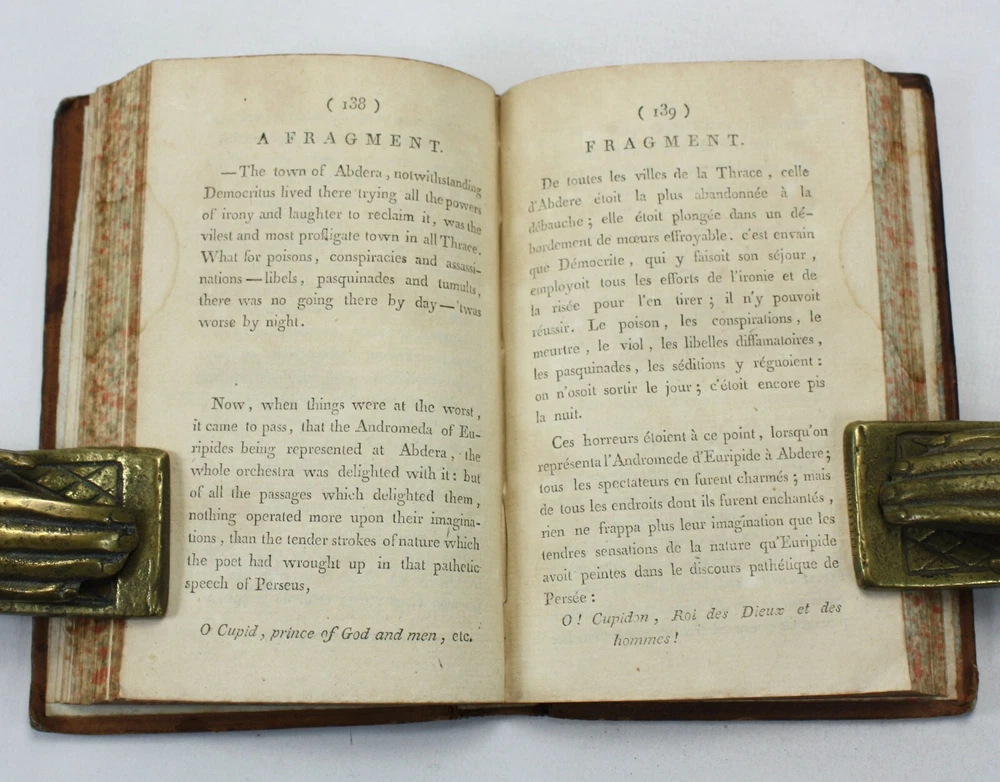 ( 138 )
A FRAGMENT.
—The town of Abdera, notwithstanding
Democritus lived there trying all the powers
of irony and laughter to reclaim it, was the
vilest and most profligate town in all Thrace.
What for poisons, conspiracies and assassi-
nations—libels, pasquinades and tumults,
there was no going there by day—'twas
worse by night.
Now, when things were at the worst,
it came to pass, that the Andromeda of Eu-
ripides being represented at Abdera, the
whole orchestra was delighted with it: but
of all the passages which delighted them,
nothing operated more upon their imagina-
tions, than the tender strokes of nature which
the poet had wrought up in that pathetic
speech of Perseus,
O Cupid, prince of God and men, etc.
( 139 )
FRAGMENT.
De toutes les villes de la Thrace, celle
d'Abdere étoit la plus abandonnée à la
débauche; elle étoit plongée dans un dé-
bordement de mœurs effroyable. c'est envain
que Démocrite, qui y faisoit son séjour,
employoit tous les efforts de l'ironie et de
la risée pour l'en tirer; il n'y pouvoit
réussir. Le poison, les conspirations, le
meurtre, le viol, les libelles diffamatoires,
les pasquinades, les séditions y régnoient:
on n'osoit sortir le jour; c'étoit encore pis
la nuit.
Ces horreurs étoient à ce point, lorsqu'on
représenta l'Andromede d'Euripide à Abdere;
tous les spectateurs en furent charmés; mais
de tous les endroits dont ils furent enchantés,
rien ne frappa plus leur imagination que les
tendres sensations de la nature qu'Euripide
avoit peintes dans le discours pathétique de
Persée:
O! Cupidon, Roi des Dieux et des
hommes!